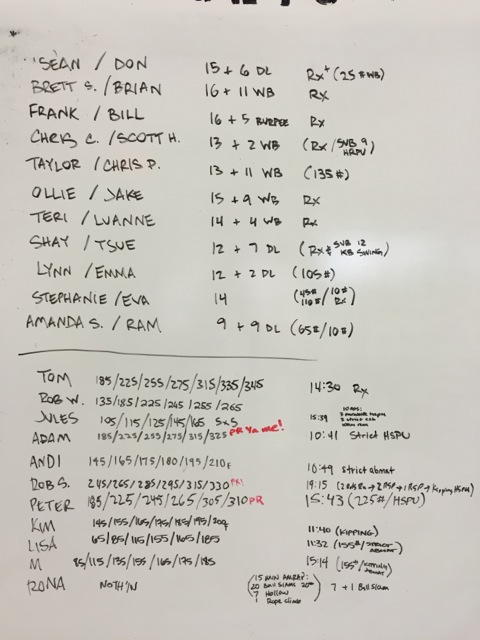 SEAN / DON 15 + 6 DL Rx+ (25# WB)
BRETT S. / BRIAN 16 + 11 WB Rx
FRANK / BILL 16 + 5 BURPEE Rx
CHRIS C. / SCOTT H. 13 + 2 WB (Rx/SUB 9 HRPU)
TAYLOR / CHRIS P. 13 + 11 WB (135#)
OLLIE / JAKE 15 + 9 WB Rx
TERI / LUANNE 14 + 4 WB Rx
SHAY / TSUE 12 + 7 DL (Rx & SUB 12 KB SWING)
LYNN / EMMA 12 + 2 DL (105#)
STEPHANIE / EVA 14 (/10# 110#/Rx)
AMANDA S. / RAM 9 + 9 DL (65#/10#)
TOM 185/225/255/275/315/335/345 14:30 Rx
ROB W. 135/185/225/245/255/265
JULES 105/115/125/145/165 5x5 15:39
ADAM 185/225/255/275/315/325 PR Ya me! 10:41 Strict HSPU
ANDI 145/165/175/180/195/210F 10:49 strict abmat
ROB S. 245/265/285/295/315/330 PR! 19:15
PETER 185/225/245/265/305/310 PR 15:43 (225#/HSPU)
KIM 145/155/165/175/185/195/204 11:40 (KIPPING)
LISA 65/85/115/155/165/185 11:32 (155#/STRICT ABMAT)
M 85/115/135/155/165/175/185 15:14 (155#/KIPPING ABMAT)
RONA NOTH'N (15 MIN AMRAP: 7 + 1 Ball Slam
20 Ball Slams 20#
7 Hollow
1 Rope climb)